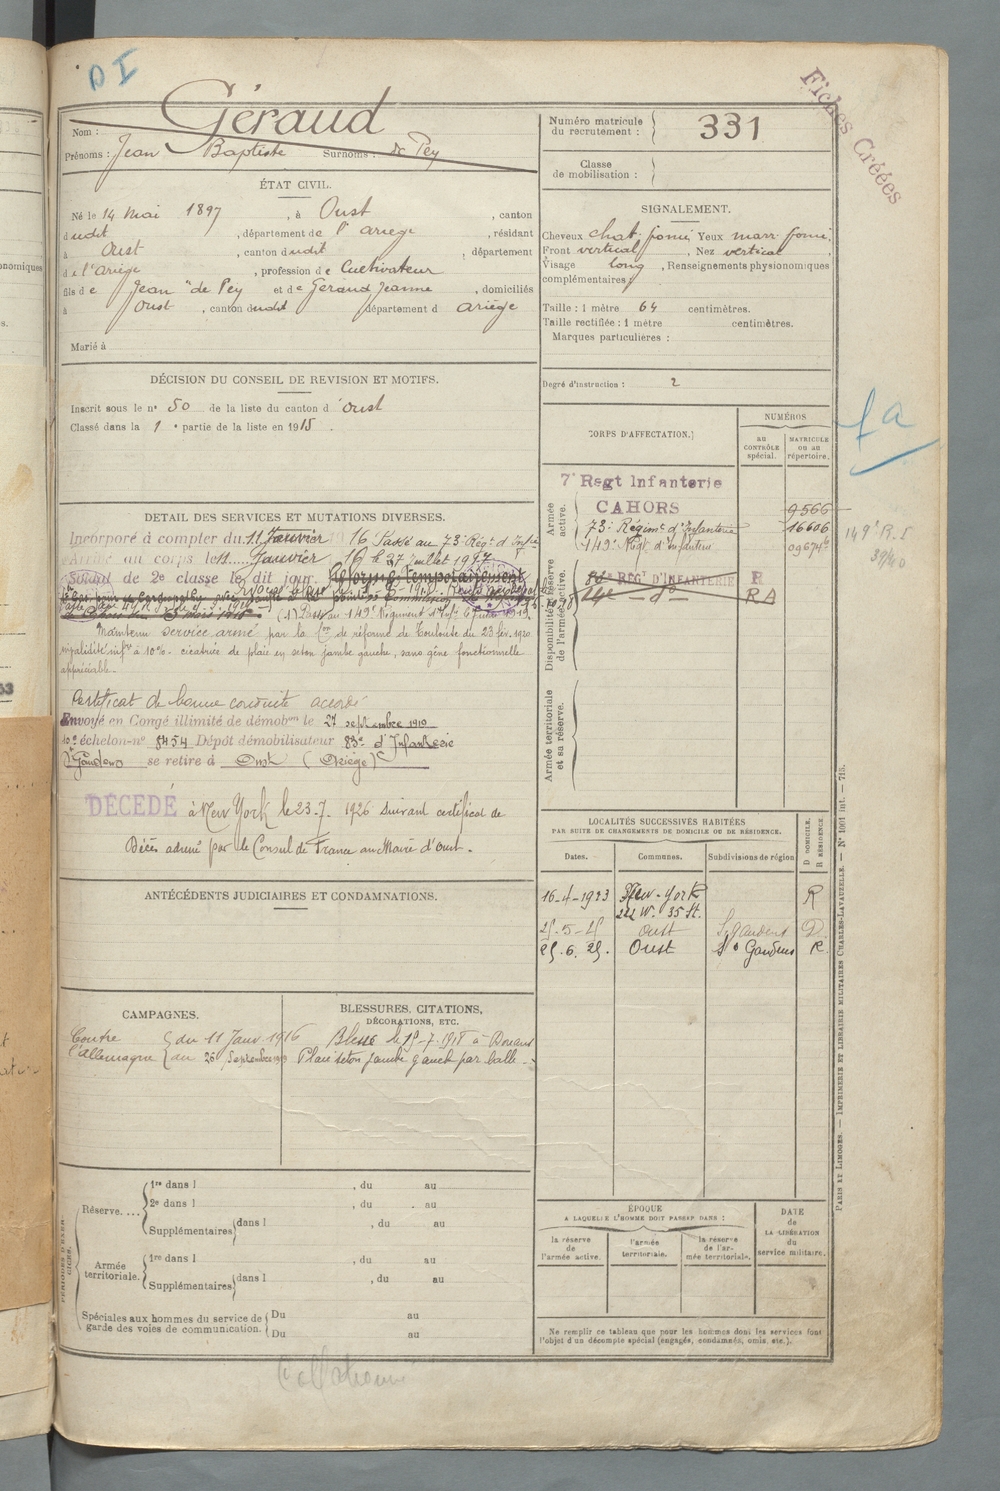 D I
Fiches Créées
Géraud
Nom :
Prénoms : Jean Baptiste Surnoms : de Pey
Numéro matricule
du recrutement : 331
Classe
de mobilisation :
ÉTAT CIVIL.
Né le 14 Mai 1897, à Oust, canton
dudit, département de l'Ariège, résidant
à Oust, canton dudit, département
de l'Ariège, profession de Cultivateur
fils de Jean "de Pey et de Géraud Jeanne, domiciliés
à Oust, canton dudit département d Ariège
Marié à
SIGNALEMENT.
Cheveux chat. Yeux marr.
Front vertical, Nez vertical
Visage long, Renseignements physionomiques
complémentaires :
Taille : 1 mètre 64 centimètres.
Taille rectifiée : 1 mètre centimètres.
Marques particulières :
Degré d'instruction : 2
DÉCISION DU CONSEIL DE REVISION ET MOTIFS.
Inscrit sous le n° 50 de la liste du canton d'Oust
Classé dans la 1e partie de la liste en 1915.
CORPS D'AFFECTATION.
NUMÉROS
AU
CONTRÔLE
spécial.
MATRICULE
ou au
répertoire.
fa
Armée
active.
7e Regt Infanterie
CAHORS 9566
73e Régimt d'Infanterie 16606
149e Régt d'Infanterie
149e R.I
Disponibilité et réserve
de l'armée active.
REGt D'INFANTERIE R
14e do RA
Armée territoriale
et sa réserve.
DETAIL DES SERVICES ET MUTATIONS DIVERSES.
Incorporé à compter du 11 Janvier 1916 Passé au 73e Régt d'Infie
Arrivé au corps le 11 Janvier 16 le 27 juillet 1917
Soldat de 2e classe le dit jour. Réformé temporairement
Passé au 149e Régiment d'Infie
Maintenu service armé par la Con de réforme de Toulouse du 23 fév. 1920
infre à 10%. cicatrice de plaie en seton jambe gauche, sans gêne fonctionnelle
appréciable
Certificat de bonne conduite accordé
Envoyé en Congé illimité de démobon le 27 septembre 1919
10e échelon-n° 8454 Dépôt démobilisateur 83e d'Infanterie
St Gaudens se retire à Oust (Ariège)
DÉCEDÉ à New York le 23.7.1926 suivant certificat de
Décès adressé par le Consul de France au Maire d'Oust.
ANTÉCÉDENTS JUDICIAIRES ET CONDAMNATIONS.
LOCALITÉS SUCCESSIVES HABITÉES
PAR SUITE DE CHANGEMENTS DE DOMICILE OU DE RÉSIDENCE.
D DOMICILE.
R RÉSIDENCE
Dates. Communes. Subdivisions de région
16-4-1923 New-York R
222 W. 35 St.
25-5-25 Oust St Gaudens D
25.6.25. Oust St Gaudens R
CAMPAGNES.
Contre
l'Allemagne
du 11 Janv 1916
au 26 Septembre 1919
BLESSURES, CITATIONS,
DÉCORATIONS, ETC.
Blessé le
Plaie séton jambe gauche par balle
PÉRIODES D'EXERCICES.
Réserve....
1re dans l , du au
2e dans l , du au
Supplémentaires dans l , du au
Armée
territoriale.
1re dans l , du au
Supplémentaires dans l , du au
Spéciales aux hommes du service de
garde des voies de communication.
Du au
Du au
ÉPOQUE
A LAQUELLE L'HOMME DOIT PASSER DANS :
la réserve
de
l'armée active.
l'armée
territoriale.
la réserve
de l'ar-
mée territoriale.
DATE
de
LA LIBÉRATION
du
service militaire.
Ne remplir ce tableau que pour les hommes dont les services font
l'objet d'un décompte spécial (engagés, condamnés, omis, etc.).
PARIS ET LIMOGES. — IMPRIMERIE ET LIBRAIRIE MILITAIRES CHARLES-LAVAUZELLE. — N° 1001 int. — 715.